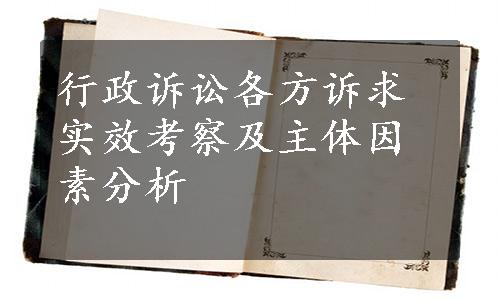 行政诉讼各方诉求
实效考察及主体因
素分析